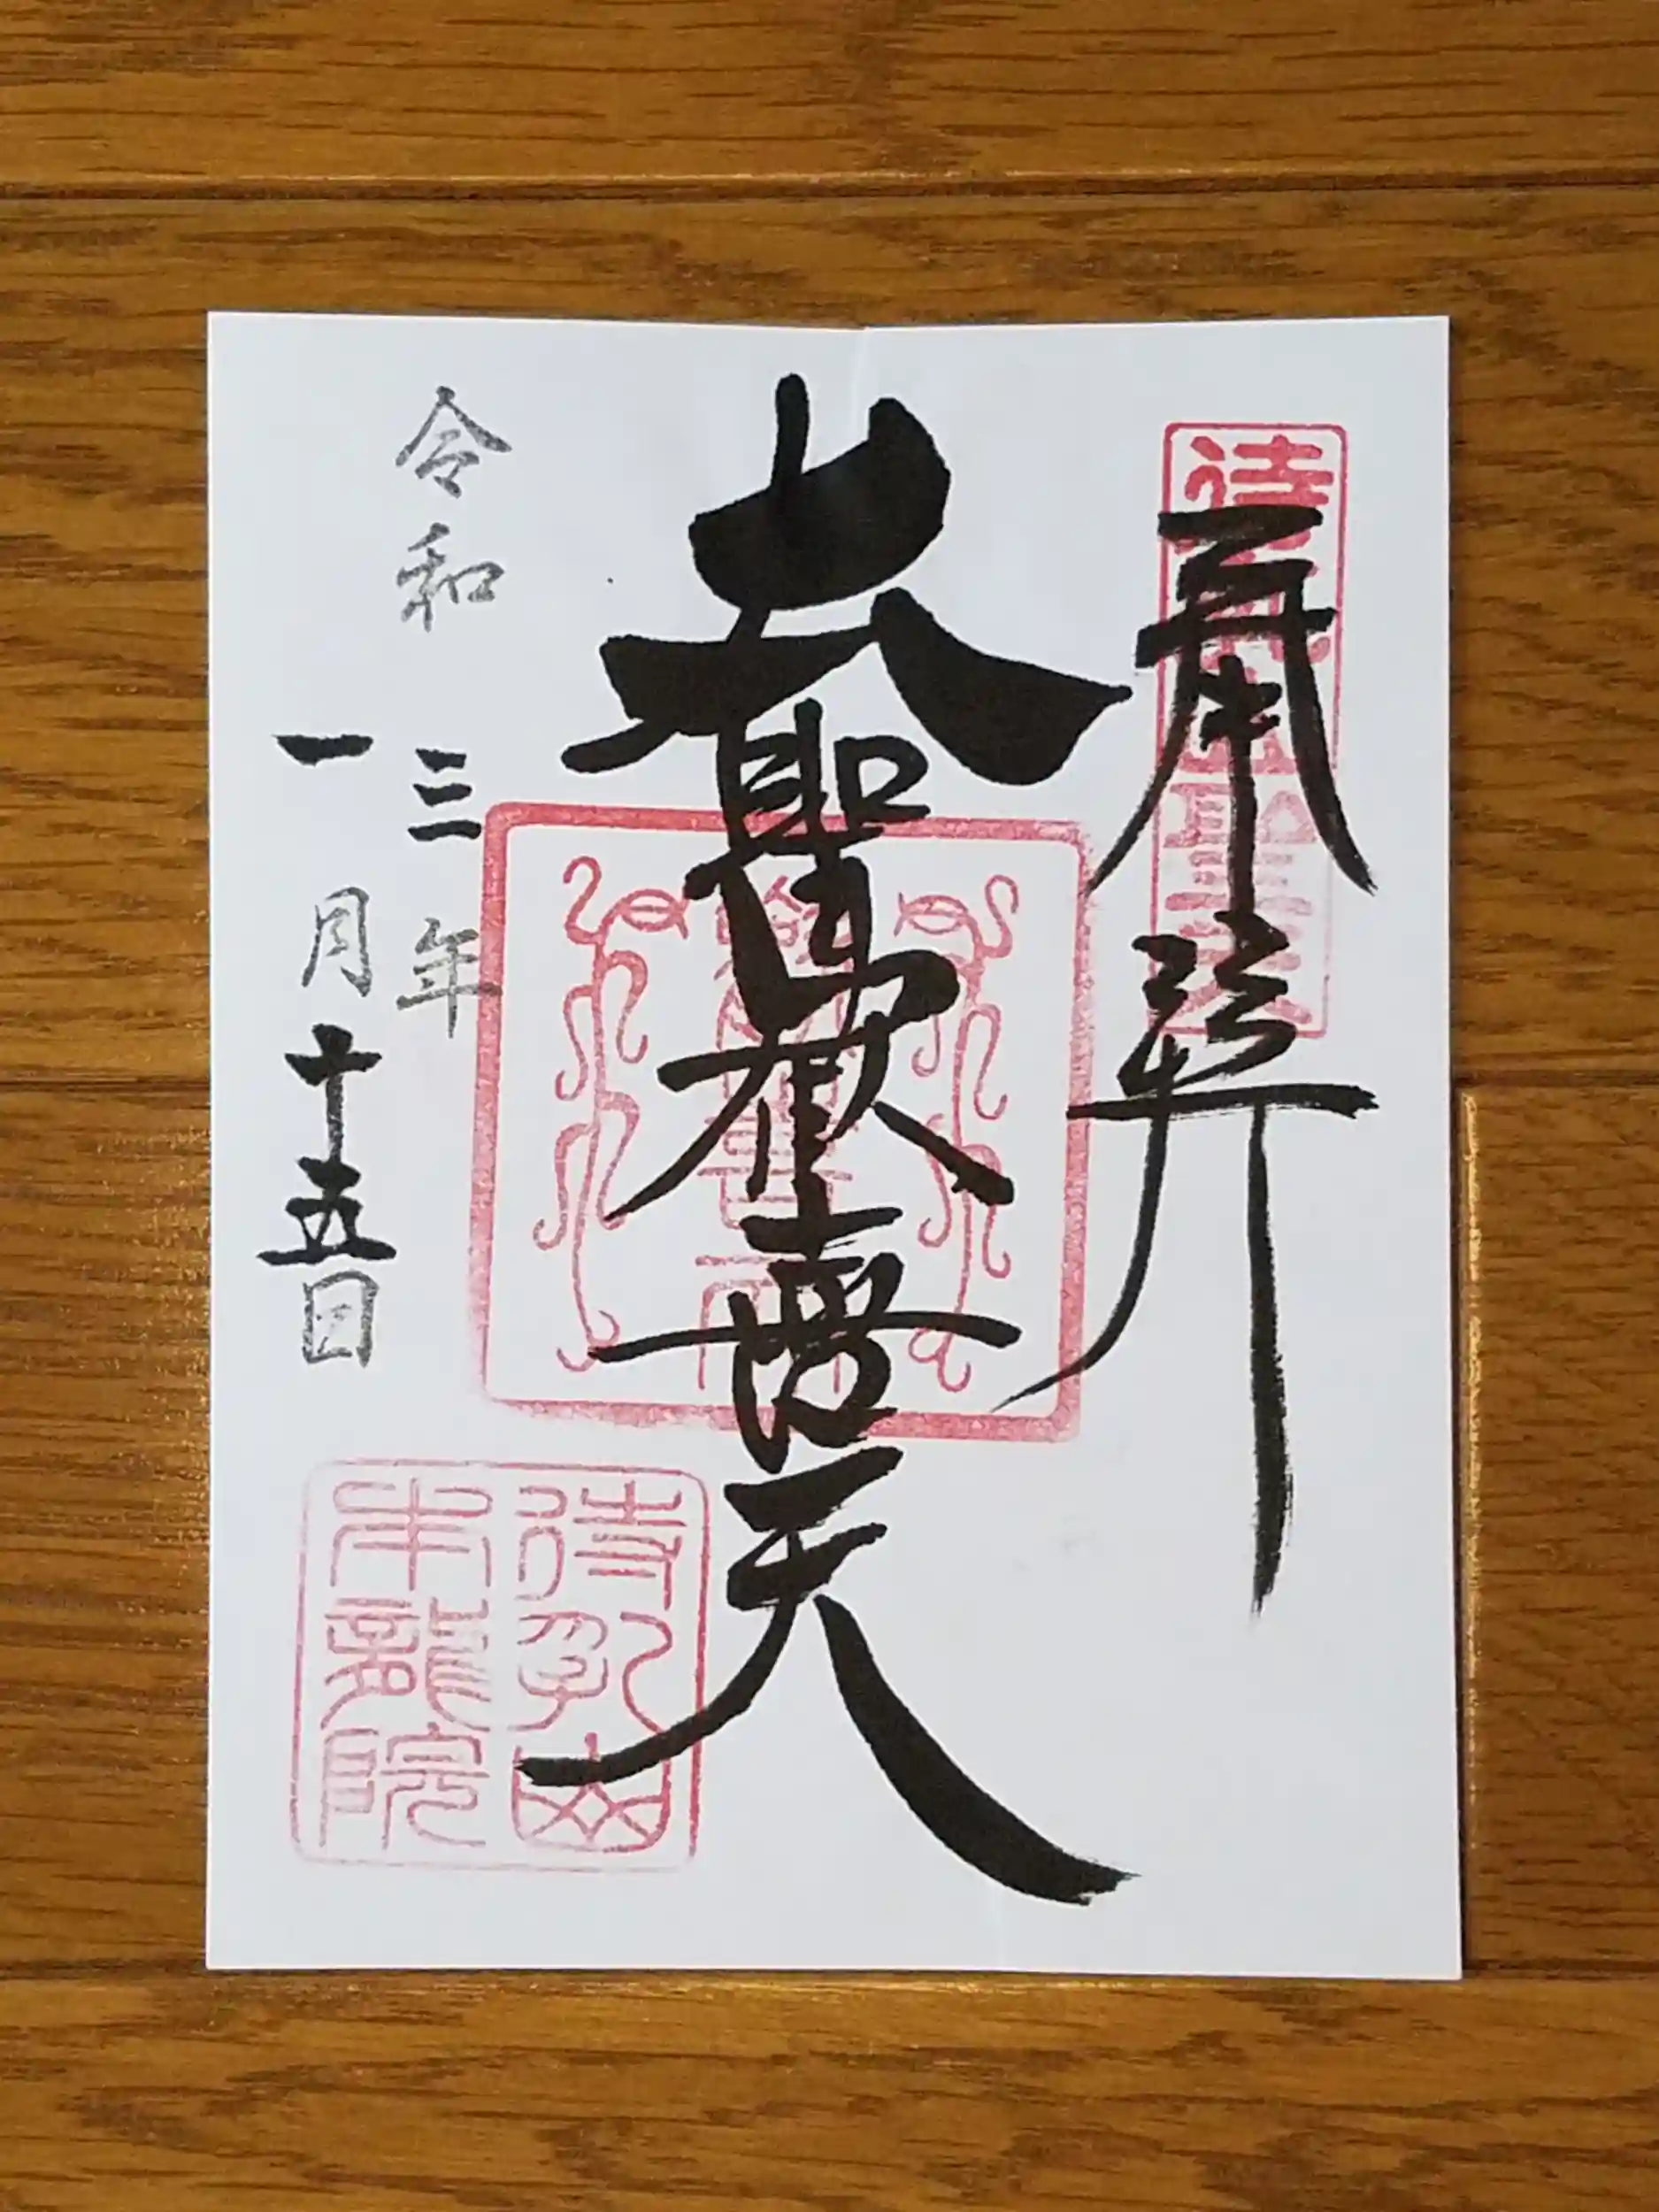 奉拝
大聖歓喜天
令和三年
一月十五日
待乳山
本龍院